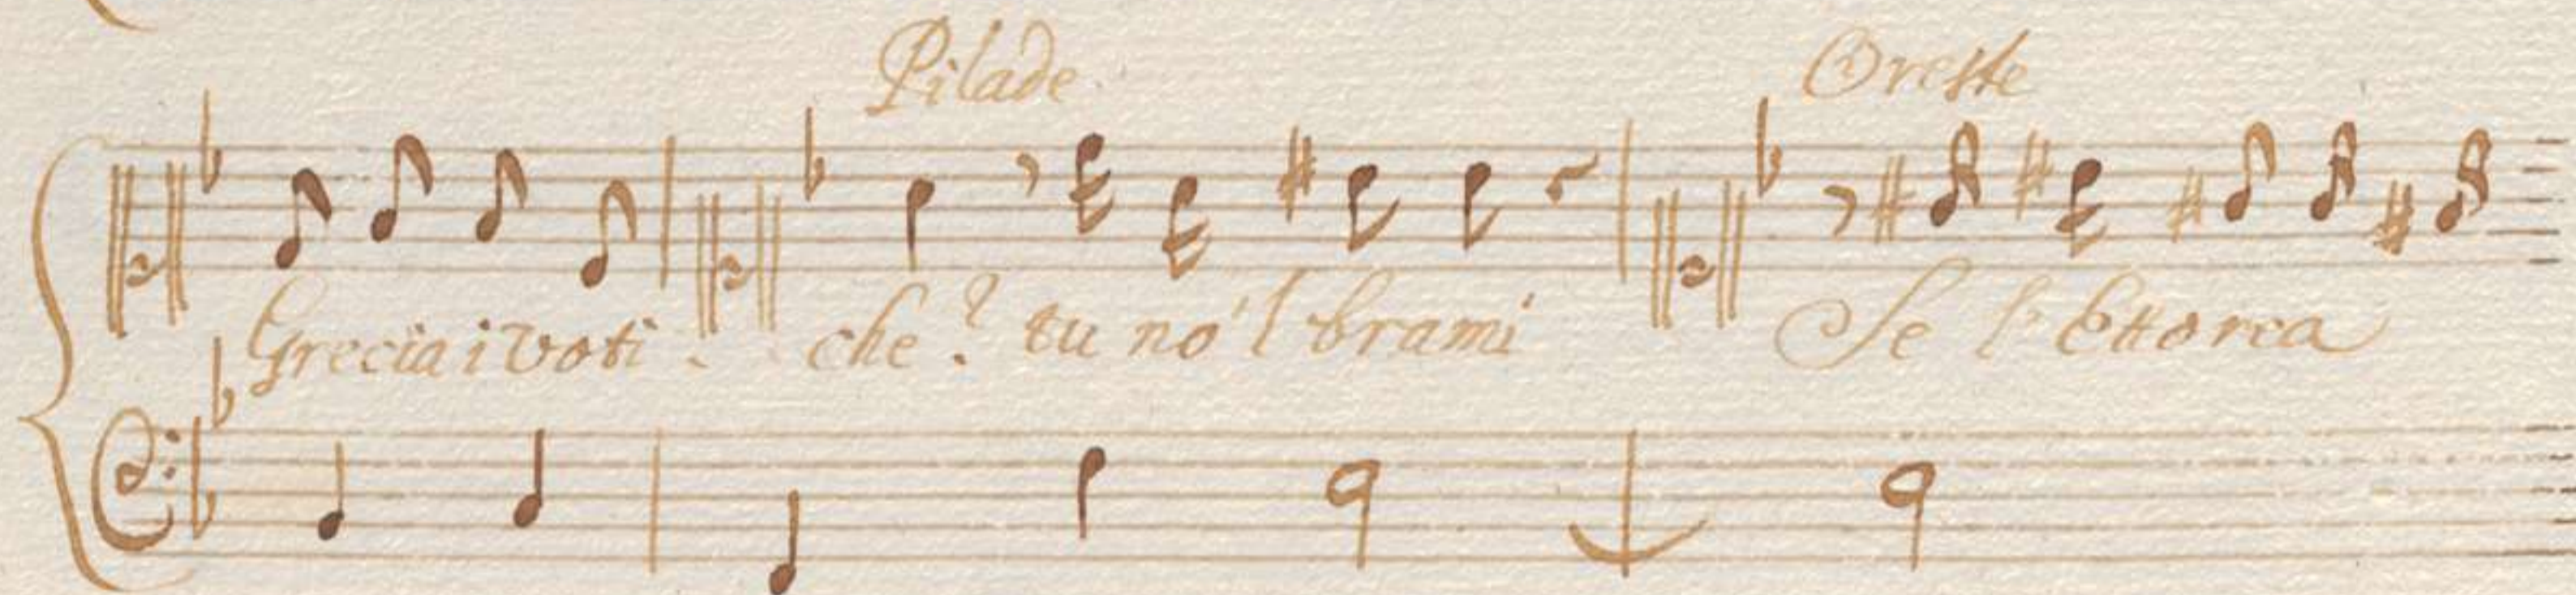 Pilade Oreste
Grecia i voti. che? tu no'l brami Se l'Ettorea